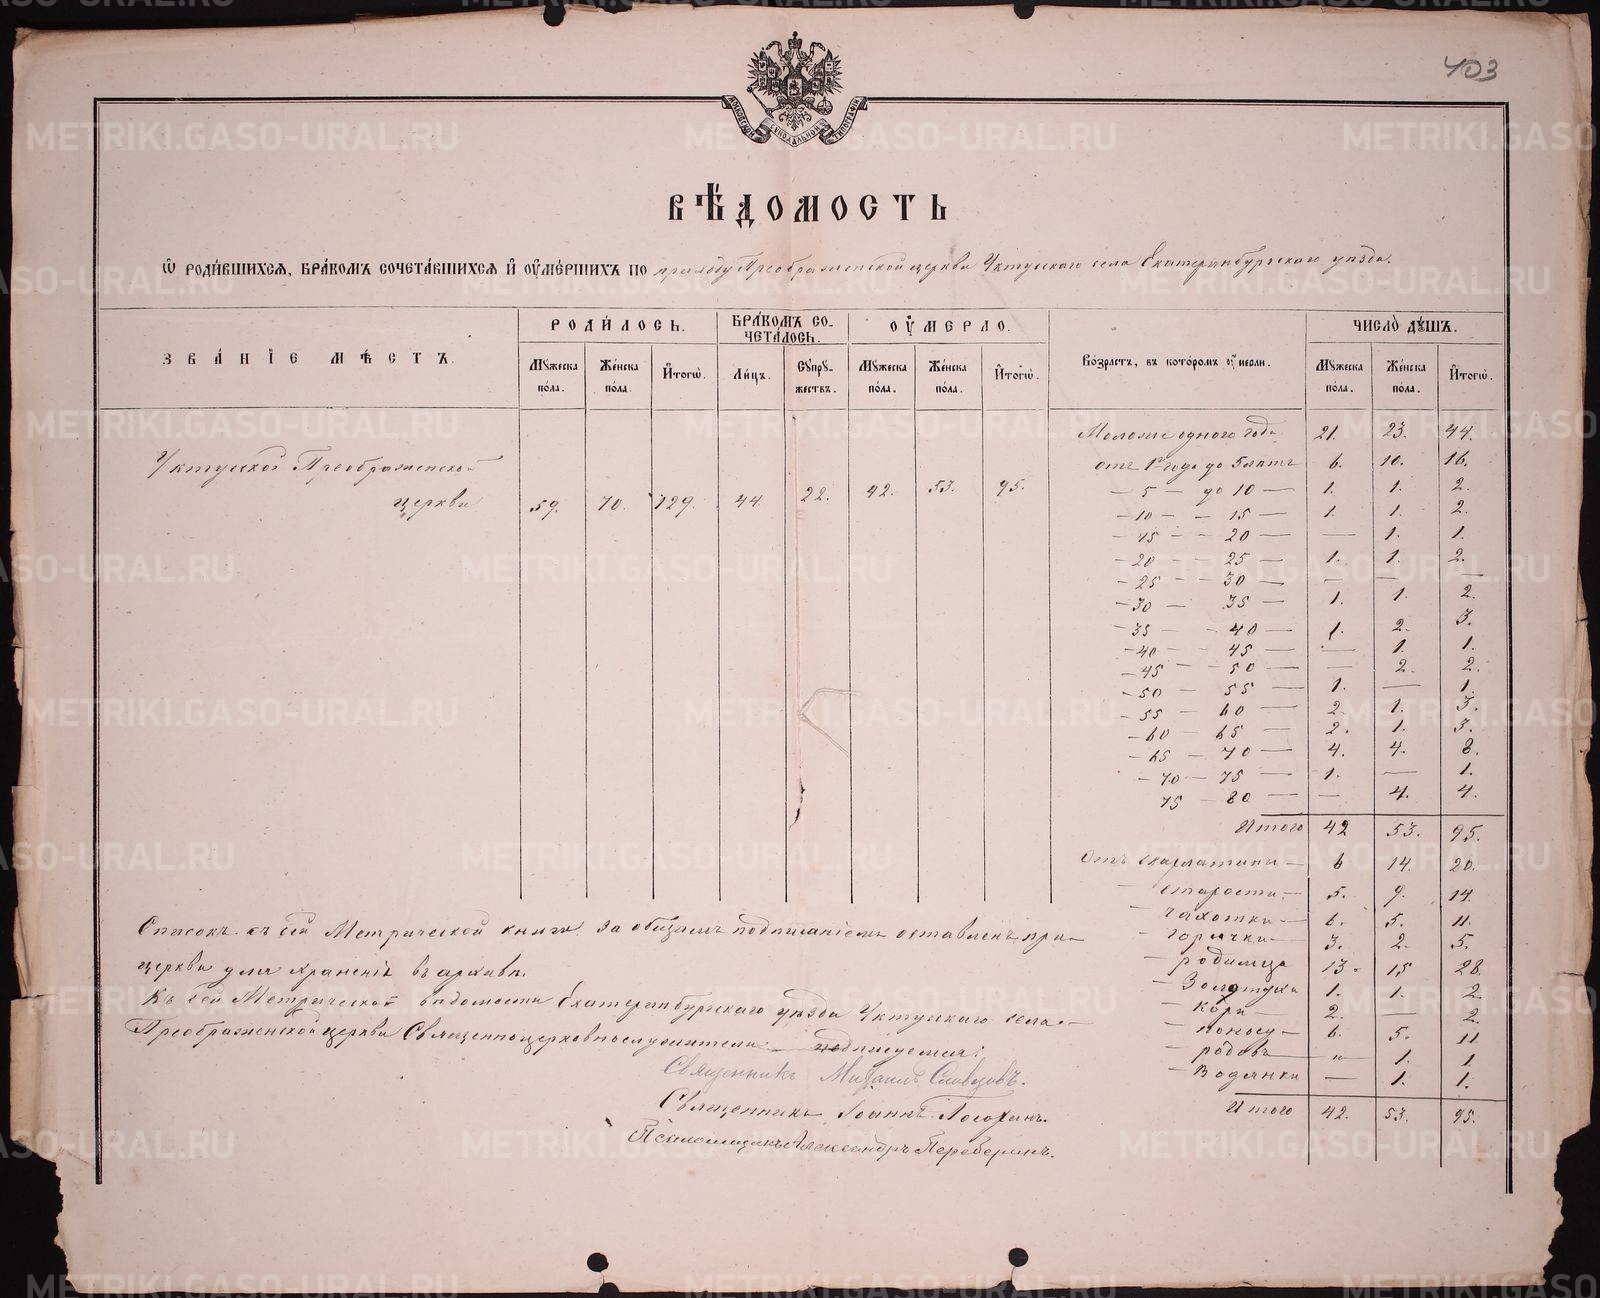 403
МОСКОВСКОЙ СѴНОДАЛЬНОЙ ТИПОГРАФІИ
ВѢДОМОСТЬ
Ѡ РОДИВШИХСЯ, БРАКОМЪ СОЧЕТАВШИХСЯ И ОУМЕРШИХЪ ПО приходу Преображенской церкви Уктусскаго села Екатеринбургскаго уѣзда.
ЗВАНІЕ МѢСТЪ.
РОДИЛОСЬ.
Мужеска пола.
Женска пола.
Итогѡ.
БРАКОМЪ СОЧЕТАЛОСЬ.
Лицъ.
Супружествъ.
ОУМЕРЛО.
Мужеска пола.
Женска пола.
Итогѡ.
Возрастъ, въ которомъ оумерли.
ЧИСЛО ДУШЪ.
Мужеска пола.
Женска пола.
Итогѡ.
Уктусской Преображенской
церкви 59. 70. 129. 44. 22. 42. 53. 95.
Моложе одного года 21. 23. 44.
отъ 1го года до 5 лѣтъ 6. 10. 16.
— 5 — до 10 — 1. 1. 2.
— 10 — — 15 — 1. 1. 2.
— 15 — — 20 — — 1. 1.
— 20 — 25 — 1. 1. 2.
— 25 — 30 — — — —
— 30 — 35 — 1. 1. 2.
— 35 — — 40 — 1. 2. 3.
— 40 — 45 — — 1. 1.
— 45 — — 50 — — 2. 2.
— 50 — 55 — 1. — 1.
— 55 — 60 — 2. 1. 3.
— 60 — 65 — 2. 1. 3.
— 65 — 70 — 4. 4. 8.
— 70 — 75 — 1. — 1.
75 — 80 — — 4. 4.
Итого 42 53. 95.
Отъ скарлатины — 6 14. 20.
— старости — 5. 9. 14.
— чахотки — 6. 5. 11.
— горячки — 3. 2. 5.
— родимца 13. 15 28.
— Золотухи 1. 1. 2.
— Кори — 2. — 2.
— поносу — 6. 5. 11
— родовъ „ 1. 1.
— Водянки — 1. 1.
Итого 42. 53. 95.
Списокъ съ сей Метрической книги за общимъ подписаніемъ оставленъ при
церкви для храненія въ архивѣ.
Къ сей Метрической вѣдомости Екатеринбургскаго уѣзда Уктусскаго села
Преображенской церкви Священноцерковнослужители подписуемся:
Священникъ Михаилъ Словцовъ.
Священникъ Іоаннъ
Псаломщикъ Александръ
METRIKI.GASO-URAL.RU